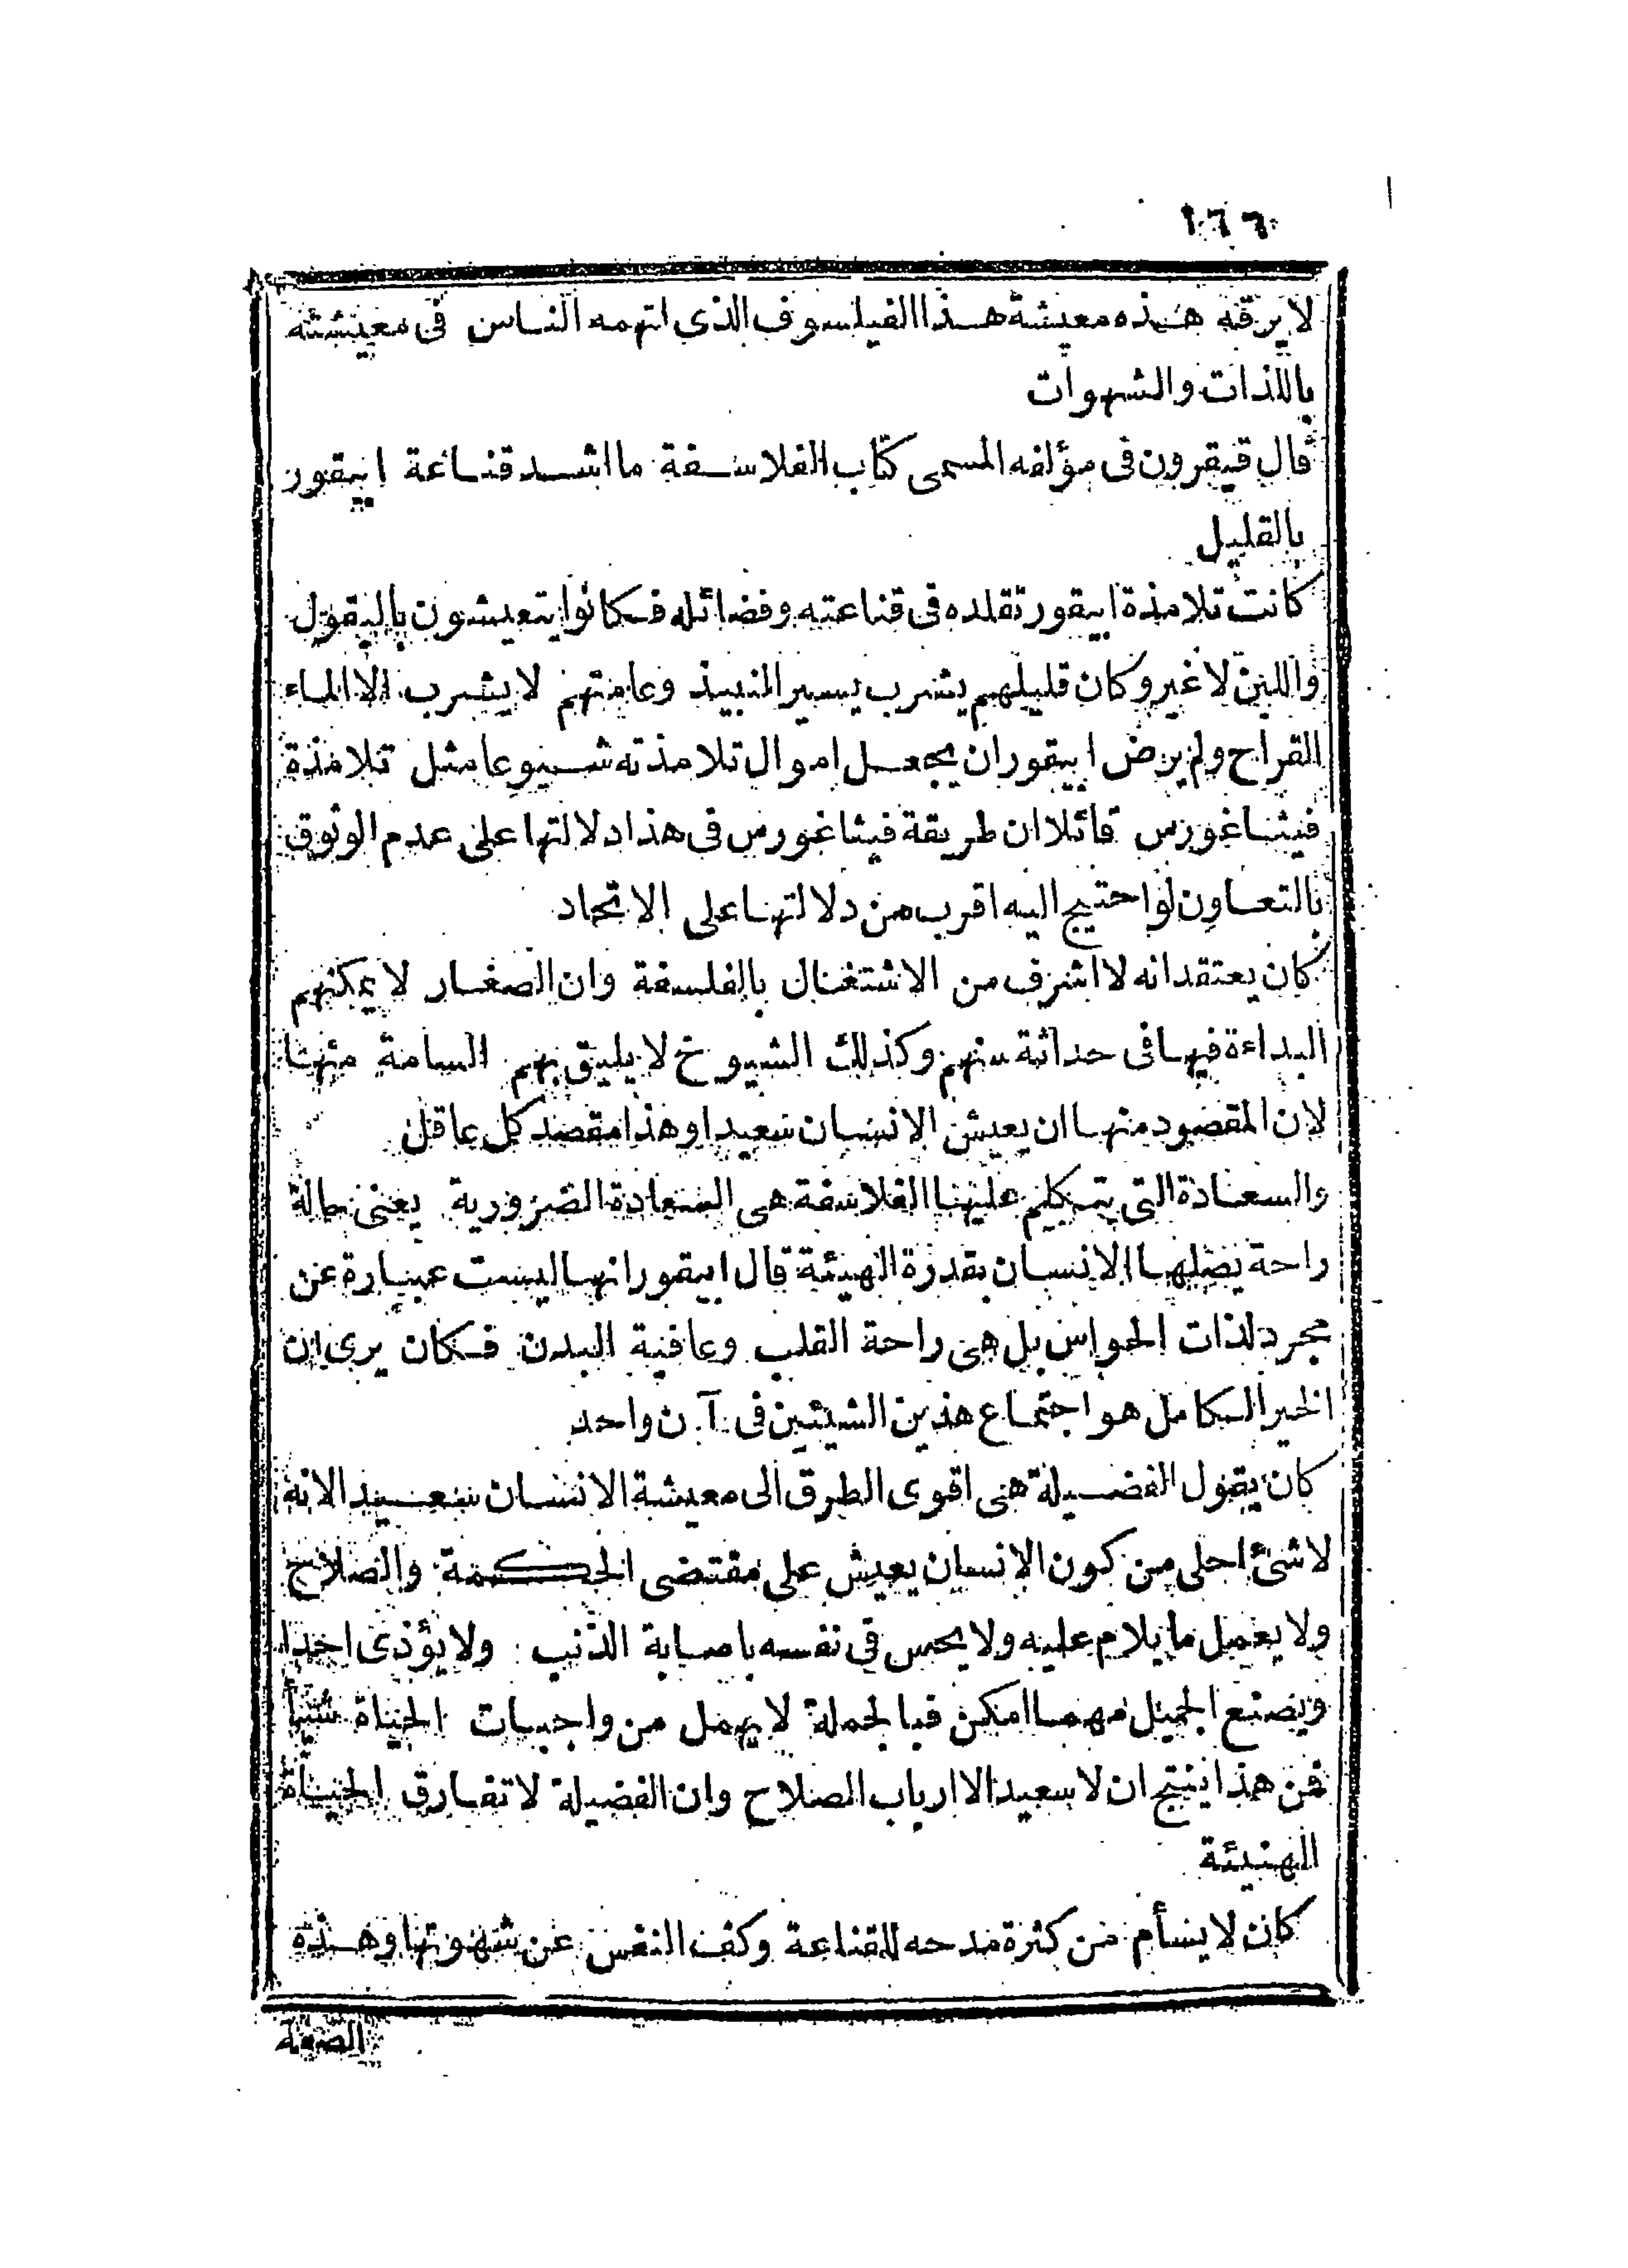 ١٦٦
لا يرقه هذه معيشة هذا الفيلسوف الذى اتهمه الناس فى معيشته
باللذات والشهوات
قال قيقرون فى مؤلفه المسمى كتاب الفلاسفة ما اشد قناعة ابيقور
بالقليل
كانت تلامذة ابيقور تقلده فى قناعته وفضائله فكانوا يتعيشون بالبقول
واللبن لا غير وكان قليلهم يشرب يسير النبيذ وعامتهم لا يشرب الا الماء
القراح ولم يرض ابيقور ان يجعل اموال تلامذته شيوعا مثل تلامذة
فيثاغورس قائلا ان طريقة فيثاغورس فى هذا دلالتها على عدم الوثوق
بالتعاون لو احتيج اليه اقرب من دلالتها على الاتحاد
كان يعتقد انه لا اشرف من الاشتغال بالفلسفة وان الصغار لا يمكنهم
البداءة فيها فى حداثة سنهم وكذلك الشيوخ لا يليق بهم السامة منها
لان المقصود منها ان يعيش الانسان سعيدا وهذا مقصد كل عاقل
والسعادة التى يتكلم عليها الفلاسفة هى السعادة الضرورية يعنى حالة
راحة يصلها الانسان بقدرة الهيئة قال ابيقور انها ليست عبارة عن
مجرد لذات الحواس بل هى راحة القلب وعافية البدن فكان يرى ان
الخير الكامل هو اجتماع هذين الشيئين فى آن واحد
كان يقول الفضيلة هى اقوى الطرق الى معيشة الانسان سعيدا لانه
لا شئ احلى من كون الانسان يعيش على مقتضى الحكمة والصلاح
ولا يعمل ما يلام عليه ولا يحس فى نفسه باصابة الذنب ولا يؤذى احدا
ويصنع الجميل مهما امكن فبالجملة لا يهمل من واجبات الحياة شيأ
فمن هذا ينتج ان لا سعيد الا ارباب الصلاح وان الفضيلة لا تفارق الحياة
الهنيئة
كان لا يسأم من كثرة مدحه للقناعة وكف النفس عن شهوتها وهذه